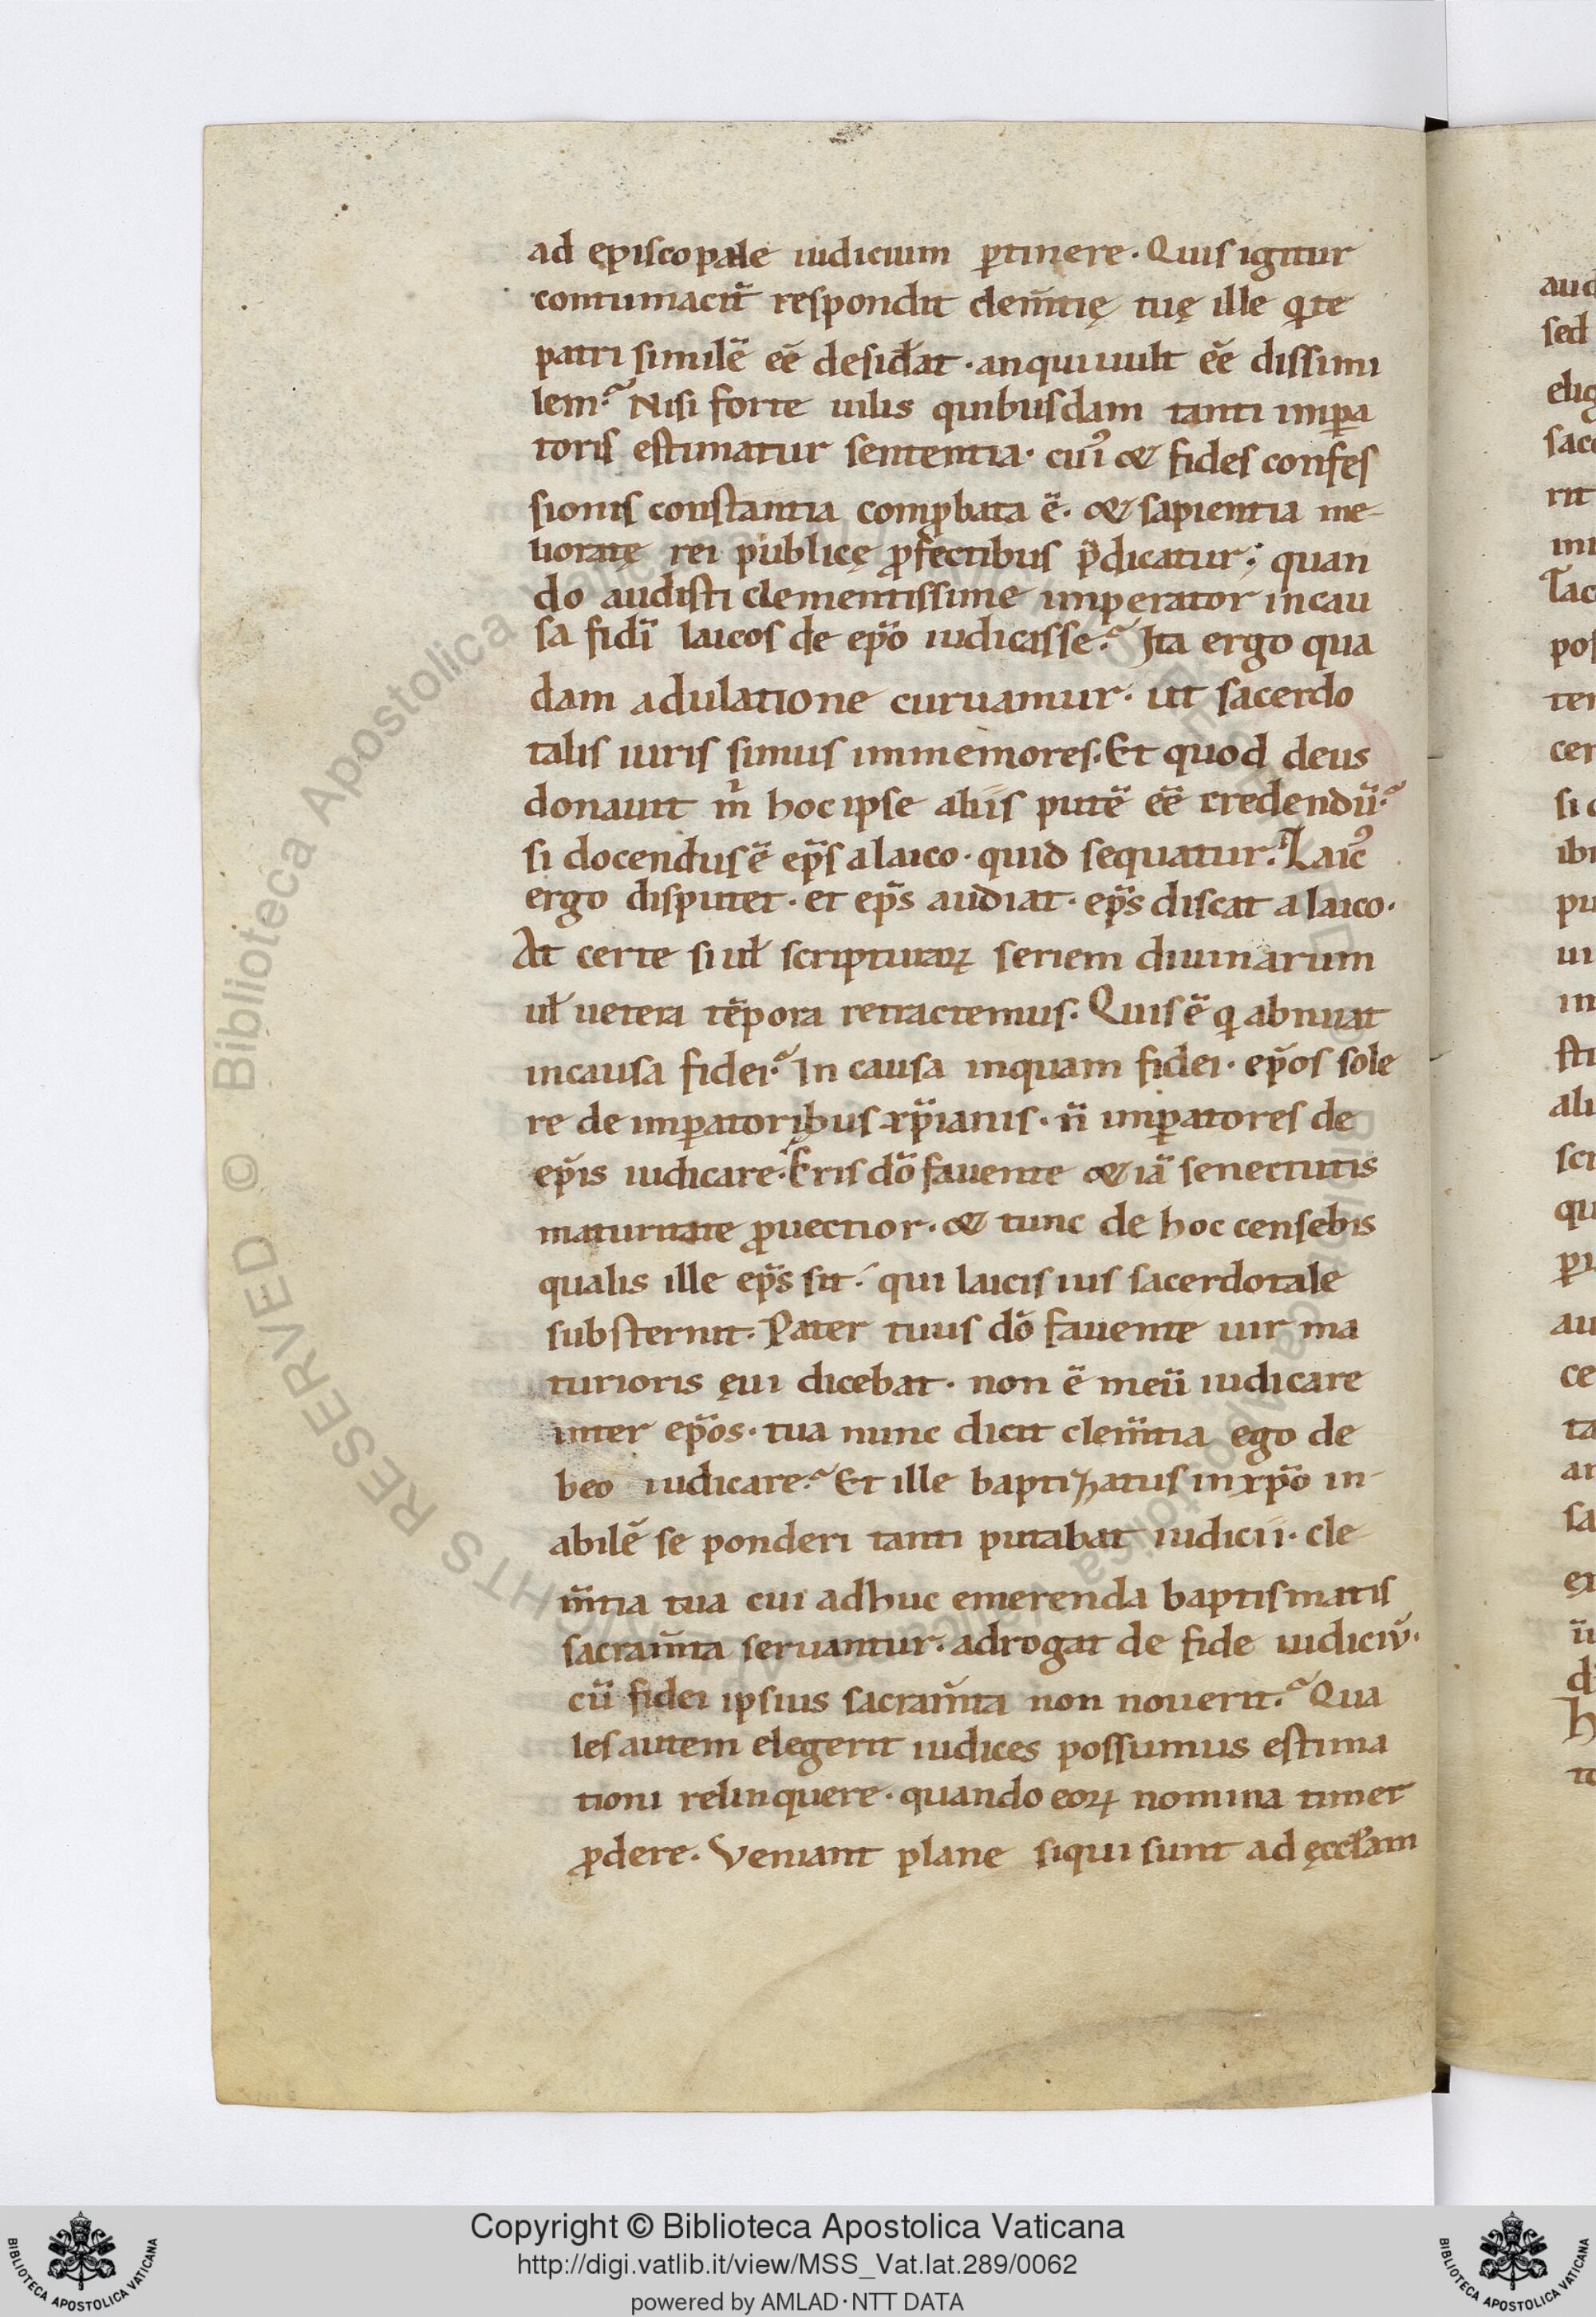 ad episcopale iudicium ꝑtinere. Quis igitur
contumacit̃ respondit clem̃tię tuę ille q̇ te
patri similẽ eẽ desid̃at. an qui uult eẽ dissimi
lem? Nisi forte uilis quibusdam tanti imꝑa
toris estimatur sententia. cuiꝰ & fides confes
sionis constantia comꝓbata ẽ. & sapientia me-
lioratę rei publicę ꝓfectibus p̃dicatur; quan
do audisti clementissime imperator in cau
sa fidi laicos de ep̃o iudicasse? Ita ergo qua
dam adulatione curuamur. ut sacerdo
talis iuris simus immemores. Et quod deus
donauit m̃ hoc ipse aliis putẽ eẽ credendũ?
si docendus ẽ ep̃s a laico. quid sequatur? Laicꝰ
ergo disputet. et ep̃s audiat. ep̃s discat a laico.
At certe si uł scripturaꝝ seriem diuinarum
uł uetera tẽpora retractemus. Quis ẽ q abnuat
in causa fidei? In causa inquam fidei. ep̃os sole
re de imꝑatoribus xp̃ianis. ñ imꝑatores de
ep̃is iudicare. Eris dõ fauente & iã senectutis
maturitate ꝓuectior. & tunc de hoc censebis
qualis ille ep̃s sit. qui laicis ius sacerdotale
substernit. Pater tuus dõ fauente uir ma
turioris ęui dicebat. non ẽ meũ iudicare
inter ep̃os. tua nunc dicit clem̃tia ego de
beo iudicare? Et ille baptizatus in xp̃o in-
abilẽ se ponderi tanti putabat iudicii. cle
m̃tia tua cui adhuc emerenda baptismatis
sacram̃ta seruantur. adrogat de fide iudiciũ.
cũ fidei ipsius sacram̃ta non nouerit? Qua
les autem elegerit iudices possumus estima
tioni relinquere. quando eoꝝ nomina timet
ꝓdere. Veniant plane siqui sunt ad ęccłam
aud
sed
elig
sace
rit
Tac
pos
cer
si
ibi
pu
ui
in
sti
ali
scr
qu
au
ce
ta
sa
BIBLIOTECA APOSTOLICA VATICANA
Copyright © Biblioteca Apostolica Vaticana
http://digi.vatlib.it/view/MSS_Vat.lat.289/0062
powered by AMLAD·NTT DATA
BIBLIOTECA APOSTOLICA VATICANA